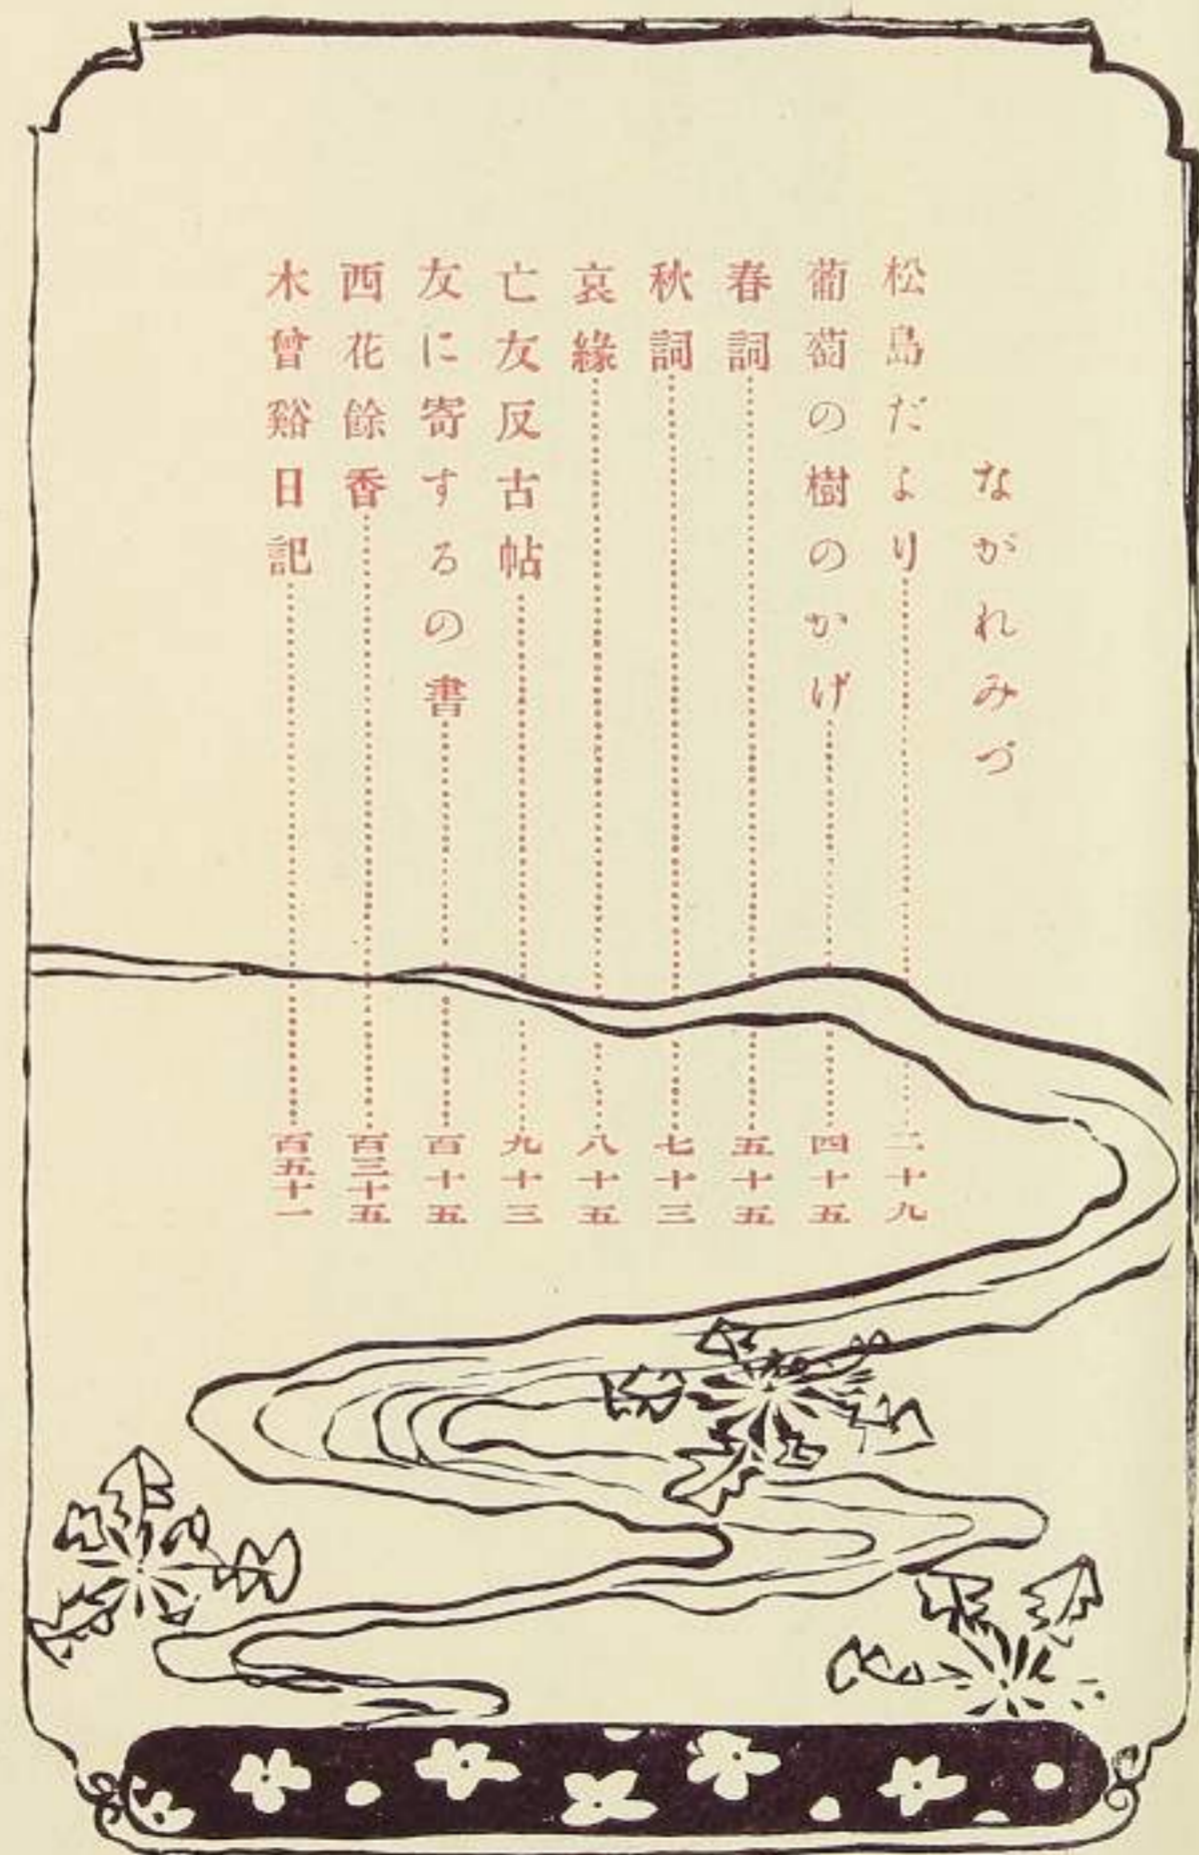 ながれみづ
松島だより 二十九
葡萄の樹のかげ 四十五
春詞 五十五
秋詞 七十三
哀緣 八十五
亡友反古帖 九十三
友に寄するの書 百十五
西花餘香 百三十五
木曾谿日記 百五十一